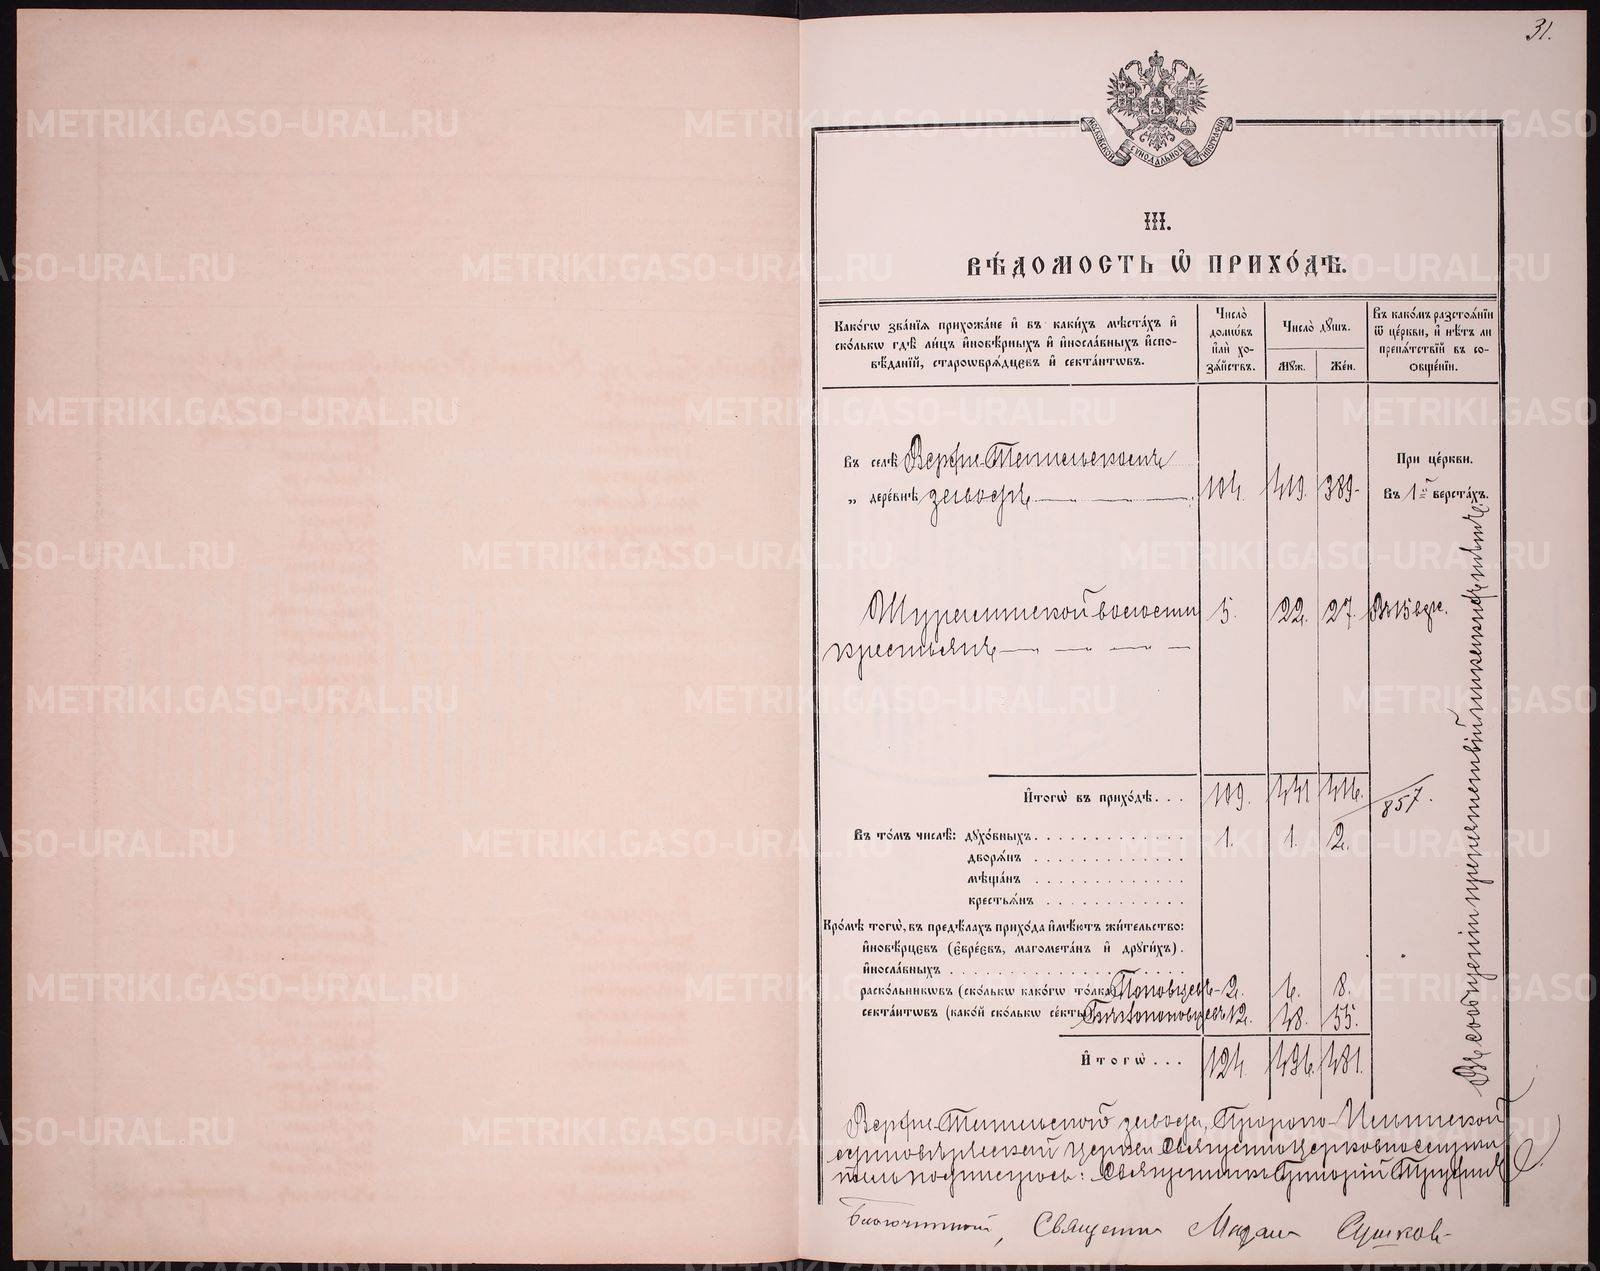 31.
МОСКОВСКОЙ СѴНОДАЛЬНОЙ ТИПОГРАФІИ
III.
ВѢ́ДОМОСТЬ Ѽ ПРИХО́ДѢ.
Како́гѡ зва́нїѧ прихожа́не и҆ въ каки́хъ мѣста́хъ и҆
ско́лькѡ гдѣ̀ ли́цъ и҆новѣ́рныхъ и҆ и҆носла́вныхъ и҆спо-
вѣ́данїй, староѡбрѧ́дцевъ и҆ секта́нтѡвъ.
Число̀
домѡ́въ
и҆лѝ хо-
зѧ́йствъ.
Число̀ дꙋ́шъ.
Мꙋж.
Же́н.
Въ како́мъ разстоѧ́нїи
ѿ це́ркви, и҆ нѣ́тъ ли
препѧ́тствїй въ со-
ѻбще́нїи.
Въ селѣ̀ Верхне-Тагильскомъ
При це́ркви.
„ дере́внѣ заводѣ 104. 419. 389. Въ 1 верста́хъ.
Шуралинской волости 5. 22. 27. Въ 15 вер.
крестьянъ
И҆тогѡ̀ въ прихо́дѣ. . . 109. 441 416. 857.
Въ то́мъ числѣ̀: дꙋхо́вныхъ. 1. 1. 2.
дворѧ́нъ
мѣща́нъ
крестьѧ́нъ
Кро́мѣ тогѡ̀, въ предѣ́лахъ прихо́да и҆мѣ́ютъ жи́тельство:
и҆новѣ́рцевъ (є҆вре́євъ, магомета́нъ и҆ дрꙋги́хъ) .
и҆носла́вныхъ
раско́льникѡвъ (ско́лькѡ како́гѡ то́лка) Поповцевъ - 2. 6. 8.
секта́нтѡвъ (како́й ско́лькѡ се́кты) Безпоповцевъ 12. 48. 55.
И҆тогѡ̀ . . . 124. 496. 481.
Въ сообщеніи препятствій никакихъ нѣтъ.
Верхне-Тагильскаго завода, Пророко-Ильинской
единовѣрческой церкви Священно церковнослужи
тель подписуюсь: Священникъ Григорій
Благочинный, Священник Сушковъ
METRIKI.GASO-URAL.RU